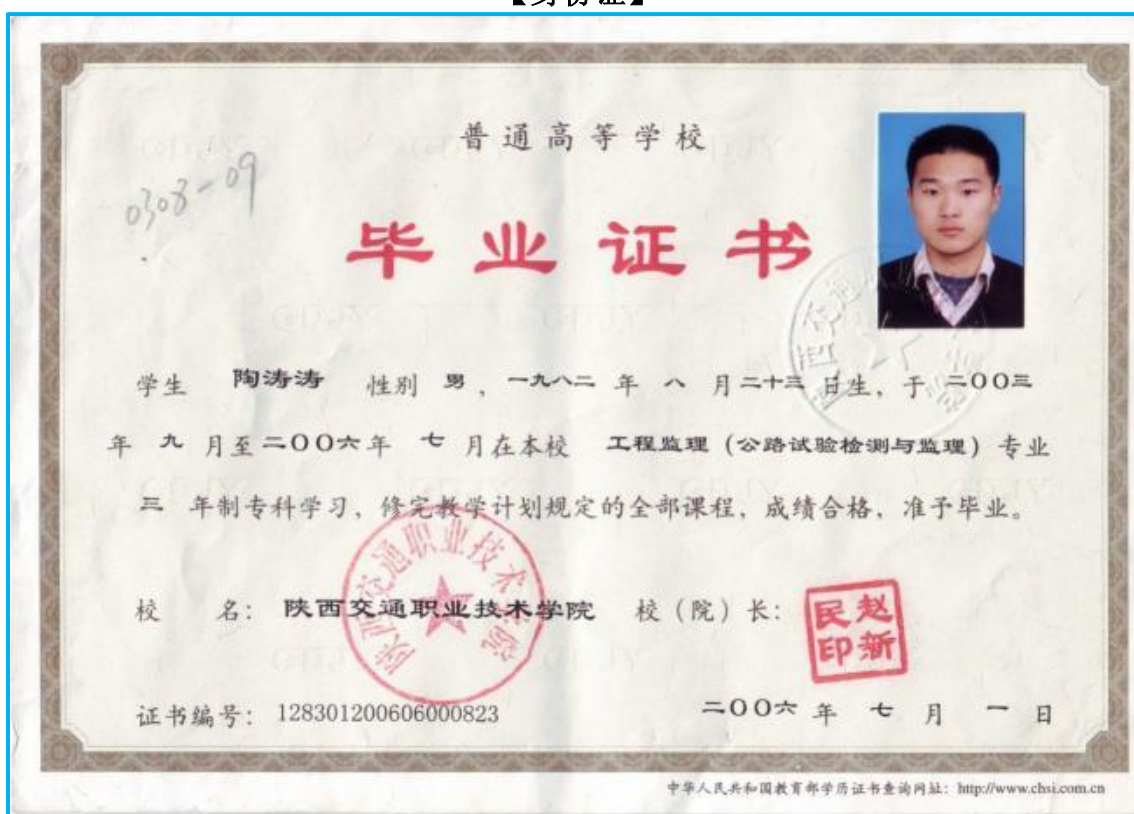 【身份证】
普通高等学校
0308-09
毕业证书
学生 陶涛涛 性别 男，一九八二 年 八 月二十三 日生，于 二〇〇三
年 九 月至二〇〇六年 七 月在本校 工程监理（公路试验检测与监理）专业
三 年制专科学习，修完教学计划规定的全部课程，成绩合格，准予毕业。
校 名：陕西交通职业技术学院 校（院）长：
赵新民印
陕西交通职业技术学院
证书编号：128301200606000823 二〇〇六 年 七 月 一 日
中华人民共和国教育部学历证书查询网址：http://www.chsi.com.cn